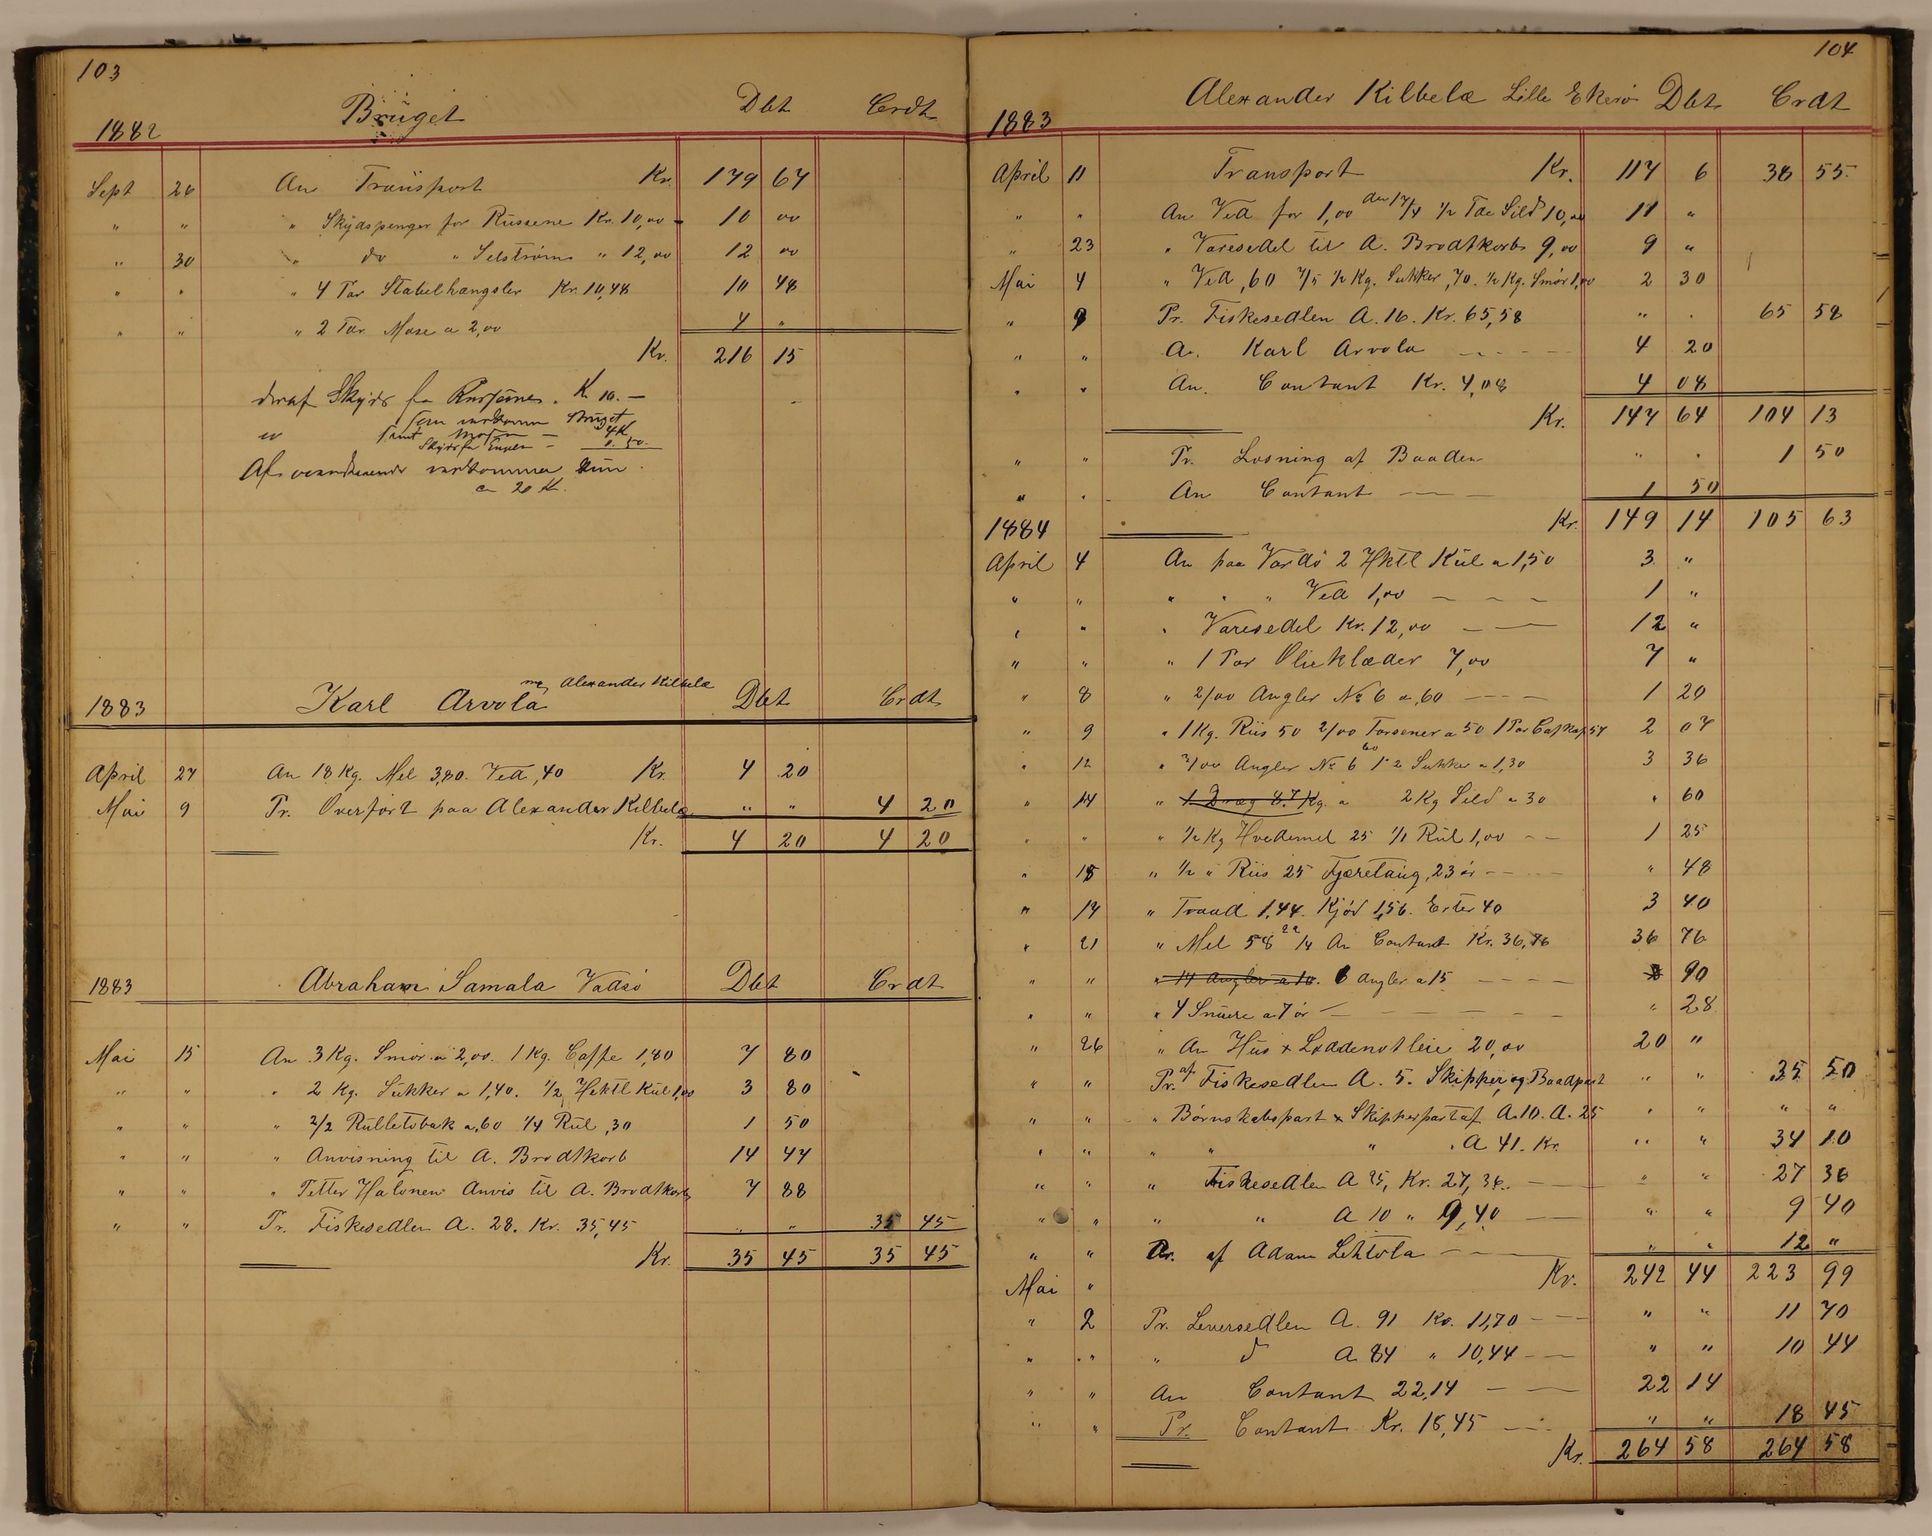 103
Bruget Dbt Crdt
1882
Sept 26 An Transport Kr. 179 67
" " " Skydspenger for Russerne Kr. 10,00 10 00
" 30 " do " Selström " 12,00 12 00
" " " 4 Par Stabelhængsler Kr. 10,48 10 48
" " " 2 Tdr. Mose a 2,00 4 "
Kr. 216 15
deraf Skyds fra Russerne. K. 10. —
som vedkomm Bruget
samt Mosen — 4K
Skyds fra —
Af ovenstaaende vedkommer kun
ca 20 K.
1883 Karl Arvola Alexander Kilbelæ Dbt Crdt
April 27 An 18 Kg. Mel 3,80. Ved ,40 Kr. 4 20
Mai 9 Pr. Overført paa Alexander Kilbelæ " " 4 20
Kr. 4 20 4 20
1883 Abraham Samala Vadsö Dbt Crdt
Mai 15 An 3 Kg. Smör a 2,00. 1 Kg. Caffe 1,80 7 80
" " " 2 Kg. Sukker a 1,40. 1/2 Hektl Kul 1,00 3 80
" " " 2/2 Rulletobak a ,60 1/4 Rul ,30 1 50
" " " Anvisning til A. Brodtkorb 14 47
" " " Petter Halonen Anvis til A. Brodtkorb 7 88
" " Pr. Fiskesedlen A. 28. Kr. 35,45 " " 35 45
Kr. 35 45 35 45
104
Alexander Kilbelæ Lille Ekerö Dbt Crdt
1883
April 11 Transport Kr. 117 6 38 55
" " An Ved for 1,00 den 17/4 1/2 Tde Sild 10,00 11 "
" 23 " Varesedel til A. Brodtkorb 9,00 9 "
Mai 4 " Ved ,60 7/5 1/2 Kg. Sukker ,70. 1/2 Kg. Smör 1,00 2 30
" 9 Pr. Fiskesedlen A. 16. Kr. 65,58 " " 65 58
" " A. Karl Arvola 4 20
" " An. Contant Kr. 4,08 4 08
Kr. 147 64 104 13
" " Pr. Losning af Baaden " " 1 50
" " An Contant 1 50
Kr. 149 14 105 63
1884
April 4 An paa Vardö 2 Hktl Kul a 1,50 3 "
" " " " " Ved 1,00 1 "
" " " Varesedel Kr. 12,00 12 "
" " " 1 Par Olieklæder 7,00 7 "
" 8 " 2/00 Angler No 6 a ,60 1 20
" 9 " 1 Kg. Riis 50 2/00 Forsener a 50 1 Par 57 2 07
" 12 " 3/00 Angler No 6 60 Sukker a 1,30 3 36
" 14 " 1 Drag 8.7 Kg. a 2 Kg Sild a 30 " 60
" " " 1/2 Kg Hvedemel 25 1/1 Rul 1,00 1 25
" 15 " 1/2 " Riis 25 Fjæretaug ,23 ör " 48
" 17 " Traad 1,44. Kjöd 1,56. Erter 40 3 40
" 21 " Mel 58 22/4 An Contant Kr. 36,76 36 76
" " " 14 Angler a 10. 6 Angler a 15 " 90
" " " 4 Snüere a 7 ör " 28
" 26 " An Hus & Loddenotleie 20,00 20 "
" " Pr. af Fiskesedlen A. 5. Skipper og Baadpart " " 35 50
" " " Börnskabspart & Skipperpart af A. 10. A. 25 " " " "
" " " " " A 41. Kr. " " 34 10
" " " Fiskesedlen A 25, Kr. 27,36. " " 27 36
" " " " A 10 " 9,40 " " 9 40
" " Pr. af Adam Lehtola " " 12 "
Mai " Kr. 242 44 223 99
" 2 Pr. Leversedlen A. 91 Kr. 11,70 " " 11 70
" " " d A 84 " 10,44 " " 10 44
" " An Contant 22,14 22 14
" " Pr. Contant Kr. 18,45 " " 18 45
Kr. 264 58 264 58